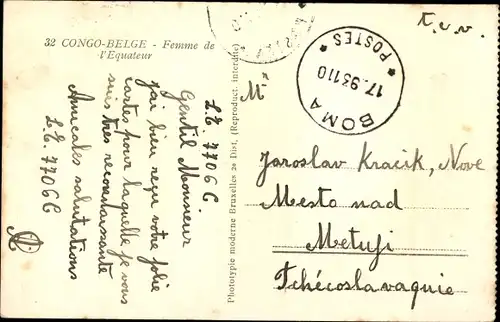 32 CONGO-BELGE - Femme de
l'Equateur
L.E. 7706C.
Gentil Monsieur
j'ai bien reçu votre jolie
cartes pour laquelle je vous
suis très reconnaissante
Amicales salutations
L.E. 7706C
Phototypie moderne Bruxelles 2e Dist. (Reproduct. interdite)
T.c.v.
BOMA
17.9 31 10
* POSTES *
M
Jaroslav Kracik, Nove
Mesto nad
Metuji
Tchécoslavaquie